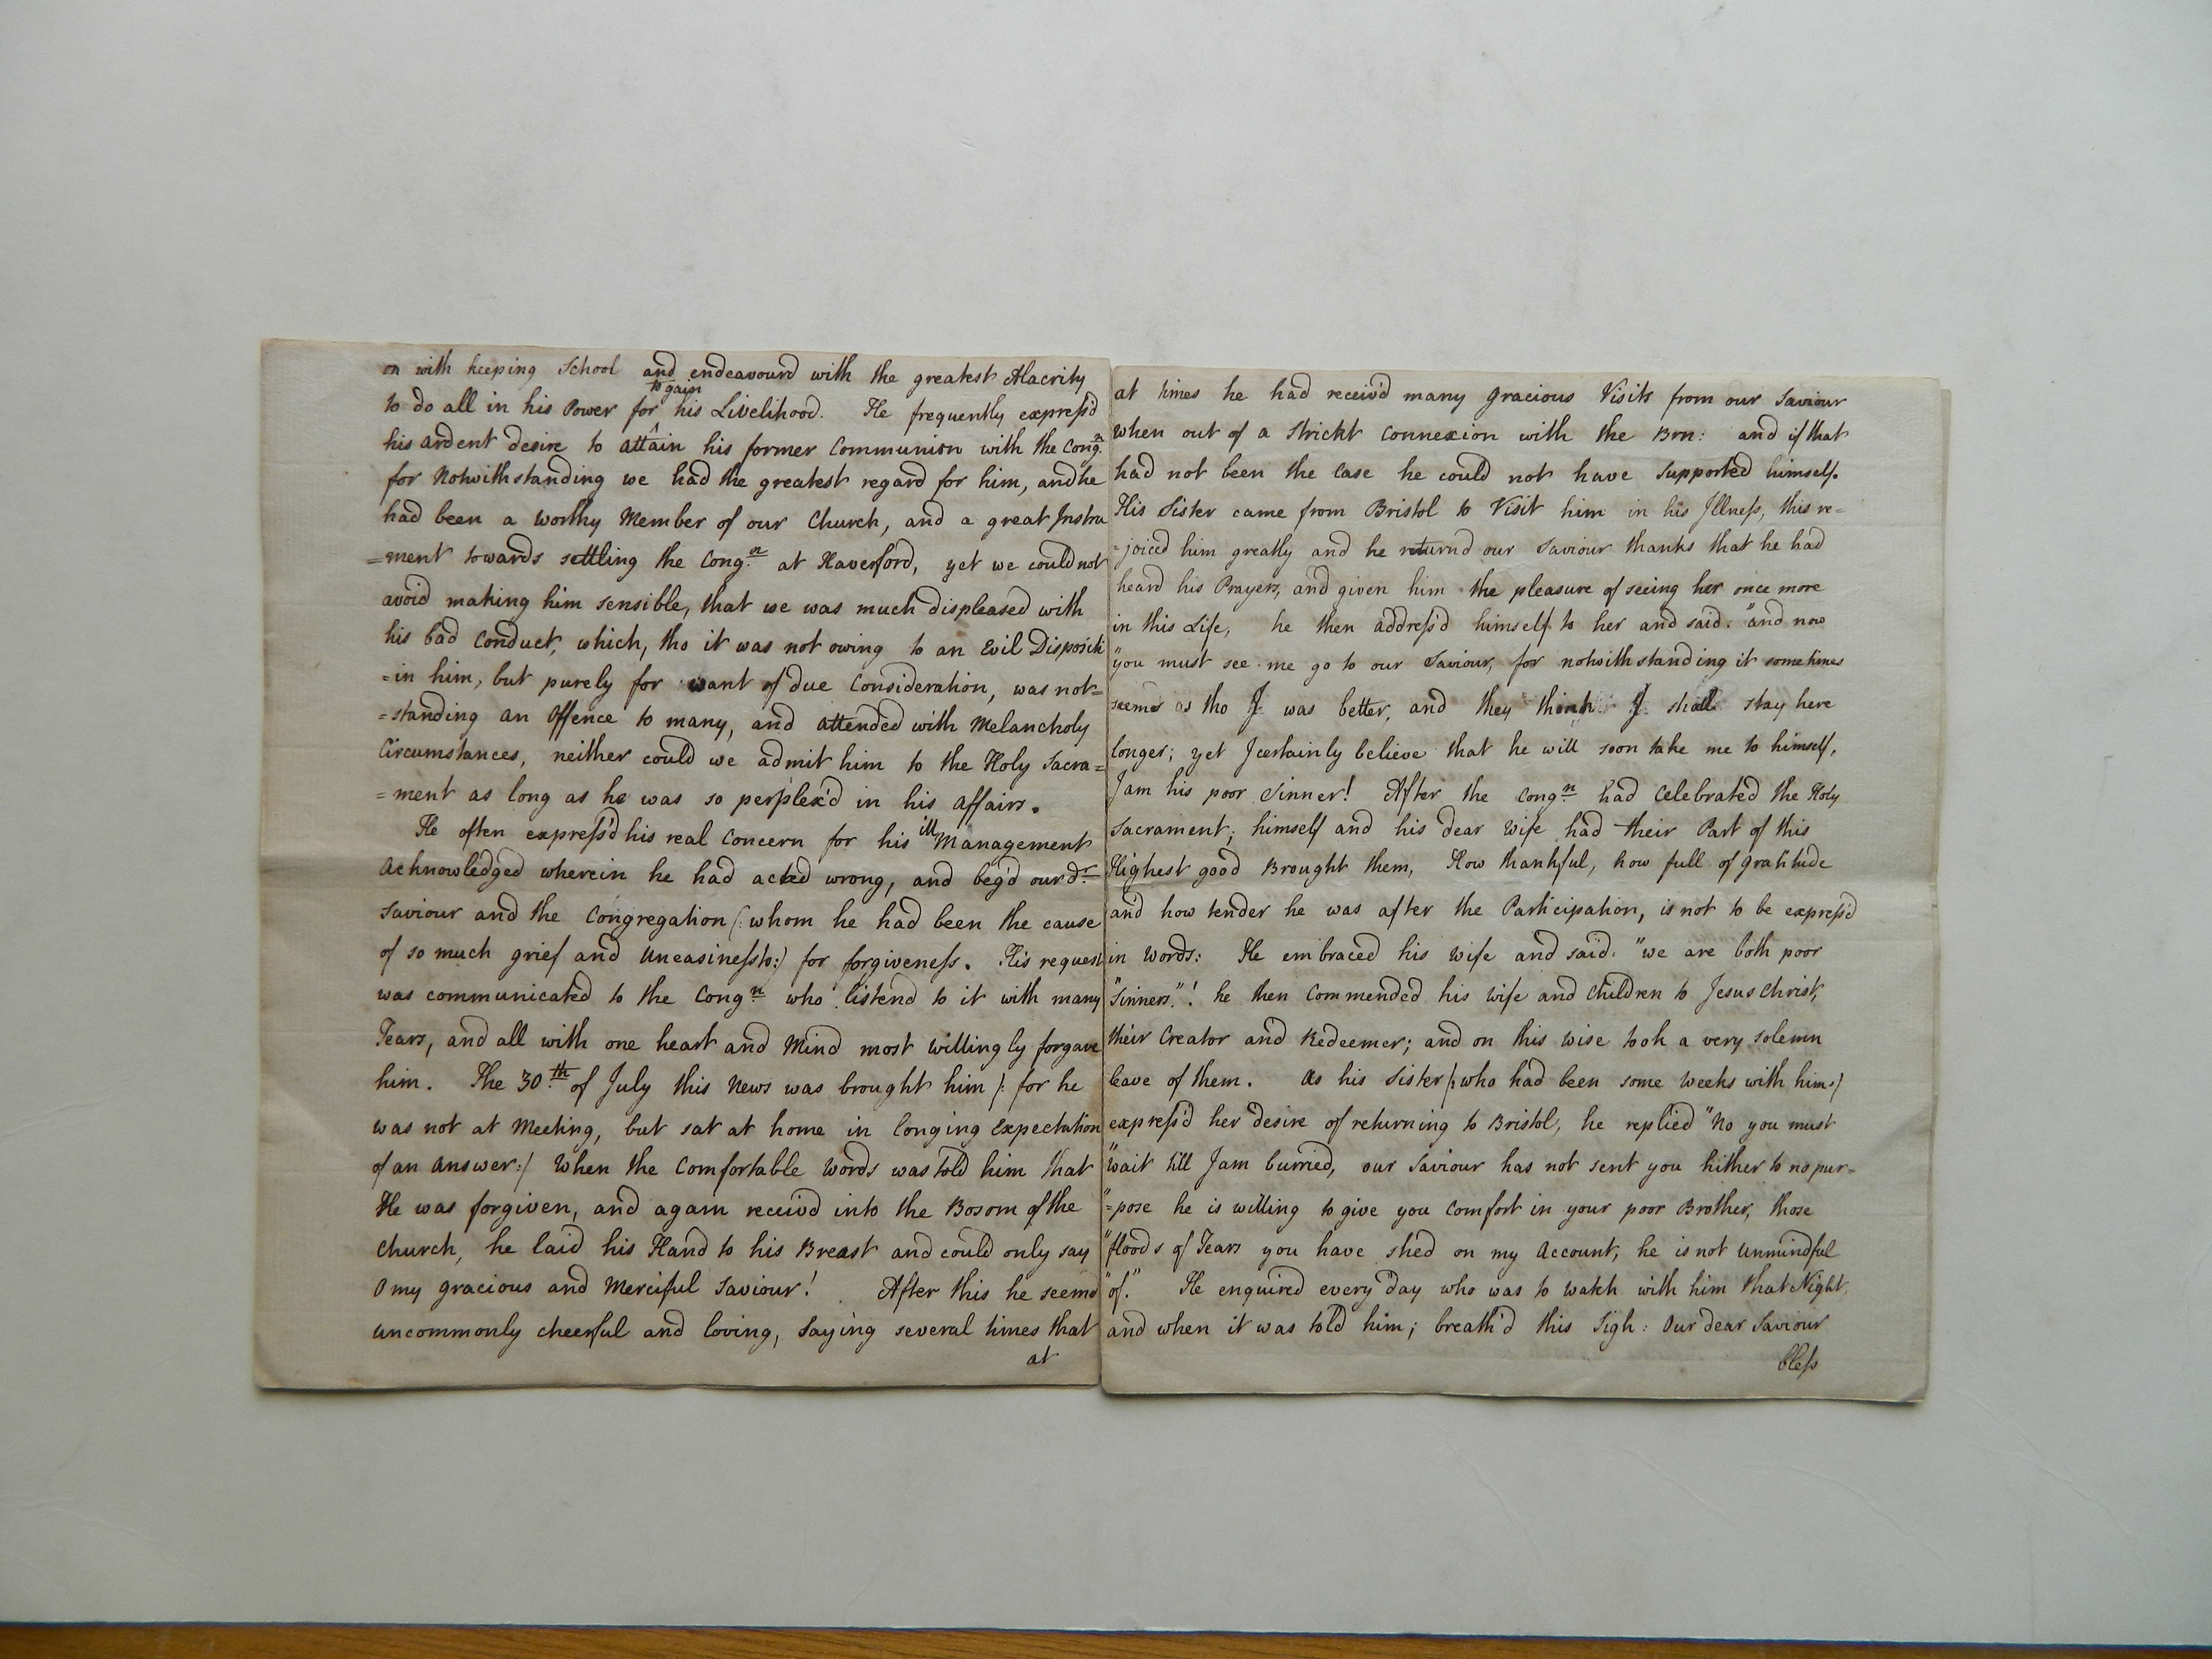 on with keeping School and endeavourd with the greatest Alacrity
to gain
to do all in his Power for his Livelihood. He frequently express'd
his ardent desire to attain his former Communion with the Congn.
for Notwithstanding we had the greatest regard for him, and he
had been a worthy Member of our Church, and a great Instru
=ment towards settling the Congn. at Haverford, yet we could not
avoid making him sensible, that we was much displeased with
his bad Conduct, which, tho it was not owing to an Evil Dispositi
=in him, but purely for want of due Consideration, was not=
=standing an Offence to many, and attended with Melancholy
Circumstances, neither could we admit him to the Holy Sacra=
=ment as long as he was so perplex'd in his affairs.
He often express'd his real Concern for his ill Management
Acknowledged wherein he had acted wrong, and beg'd our dr.
Saviour and the Congregation (: whom he had been the cause
of so much grief and Uneasiness to:) for forgiveness. His request
was communicated to the Congn. who listend to it with many
Tears, and all with one heart and Mind most willingly forgave
him. The 30th. of July this News was brought him (: for he
was not at Meeting, but sat at home in longing Expectation
of an Answer:) When the Comfortable Words was told him that
He was forgiven, and again receivd into the Bosom of the
Church, he laid his Hand to his Breast and could only say
O my gracious and Merciful Saviour! After this he seemd
uncommonly cheerful and loving, Saying several times that
at
at times he had receiv'd many Gracious Visits from our Saviour
when out of a Strickt Connexion with the Brn: and if that
had not been the Case he could not have Supported himself.
His Sister came from Bristol to Visit him in his Illness, this re=
=joiced him greatly and he returnd our Saviour thanks that he had
heard his Prayers, and given him the pleasure of seeing her once more
in this Life, he then address'd himself to her and said: "and now
"you must see me go to our Saviour, for notwithstanding it sometimes
seems as tho I was better, and they think I shall stay here
longer; yet I certainly believe that he will soon take me to himself,
I am his poor Sinner! After the Congn. had Celebrated the Holy
Sacrament; himself and his dear Wife had their Part of this
Highest good Brought them, How thankful, how full of gratitude
and how tender he was after the Participation, is not to be express'd
in Words: He embraced his Wife and said. "we are both poor
"Sinners."! he then Commended his Wife and Children to Jesus Christ,
their Creator and Redeemer; and on this wise took a very solemn
leave of them. As his Sister (: who had been some Weeks with him:)
express'd her desire of returning to Bristol, he replied "No you must
"wait till I am burried, our Saviour has not sent you hither to no pur=
"=pose he is willing to give you Comfort in your poor Brother, those
"floods of Tears you have shed on my Account, he is not Unmindful
"of." He enquired every day who was to watch with him that Night,
and when it was told him; breath'd this Sigh: Our dear Saviour
bless